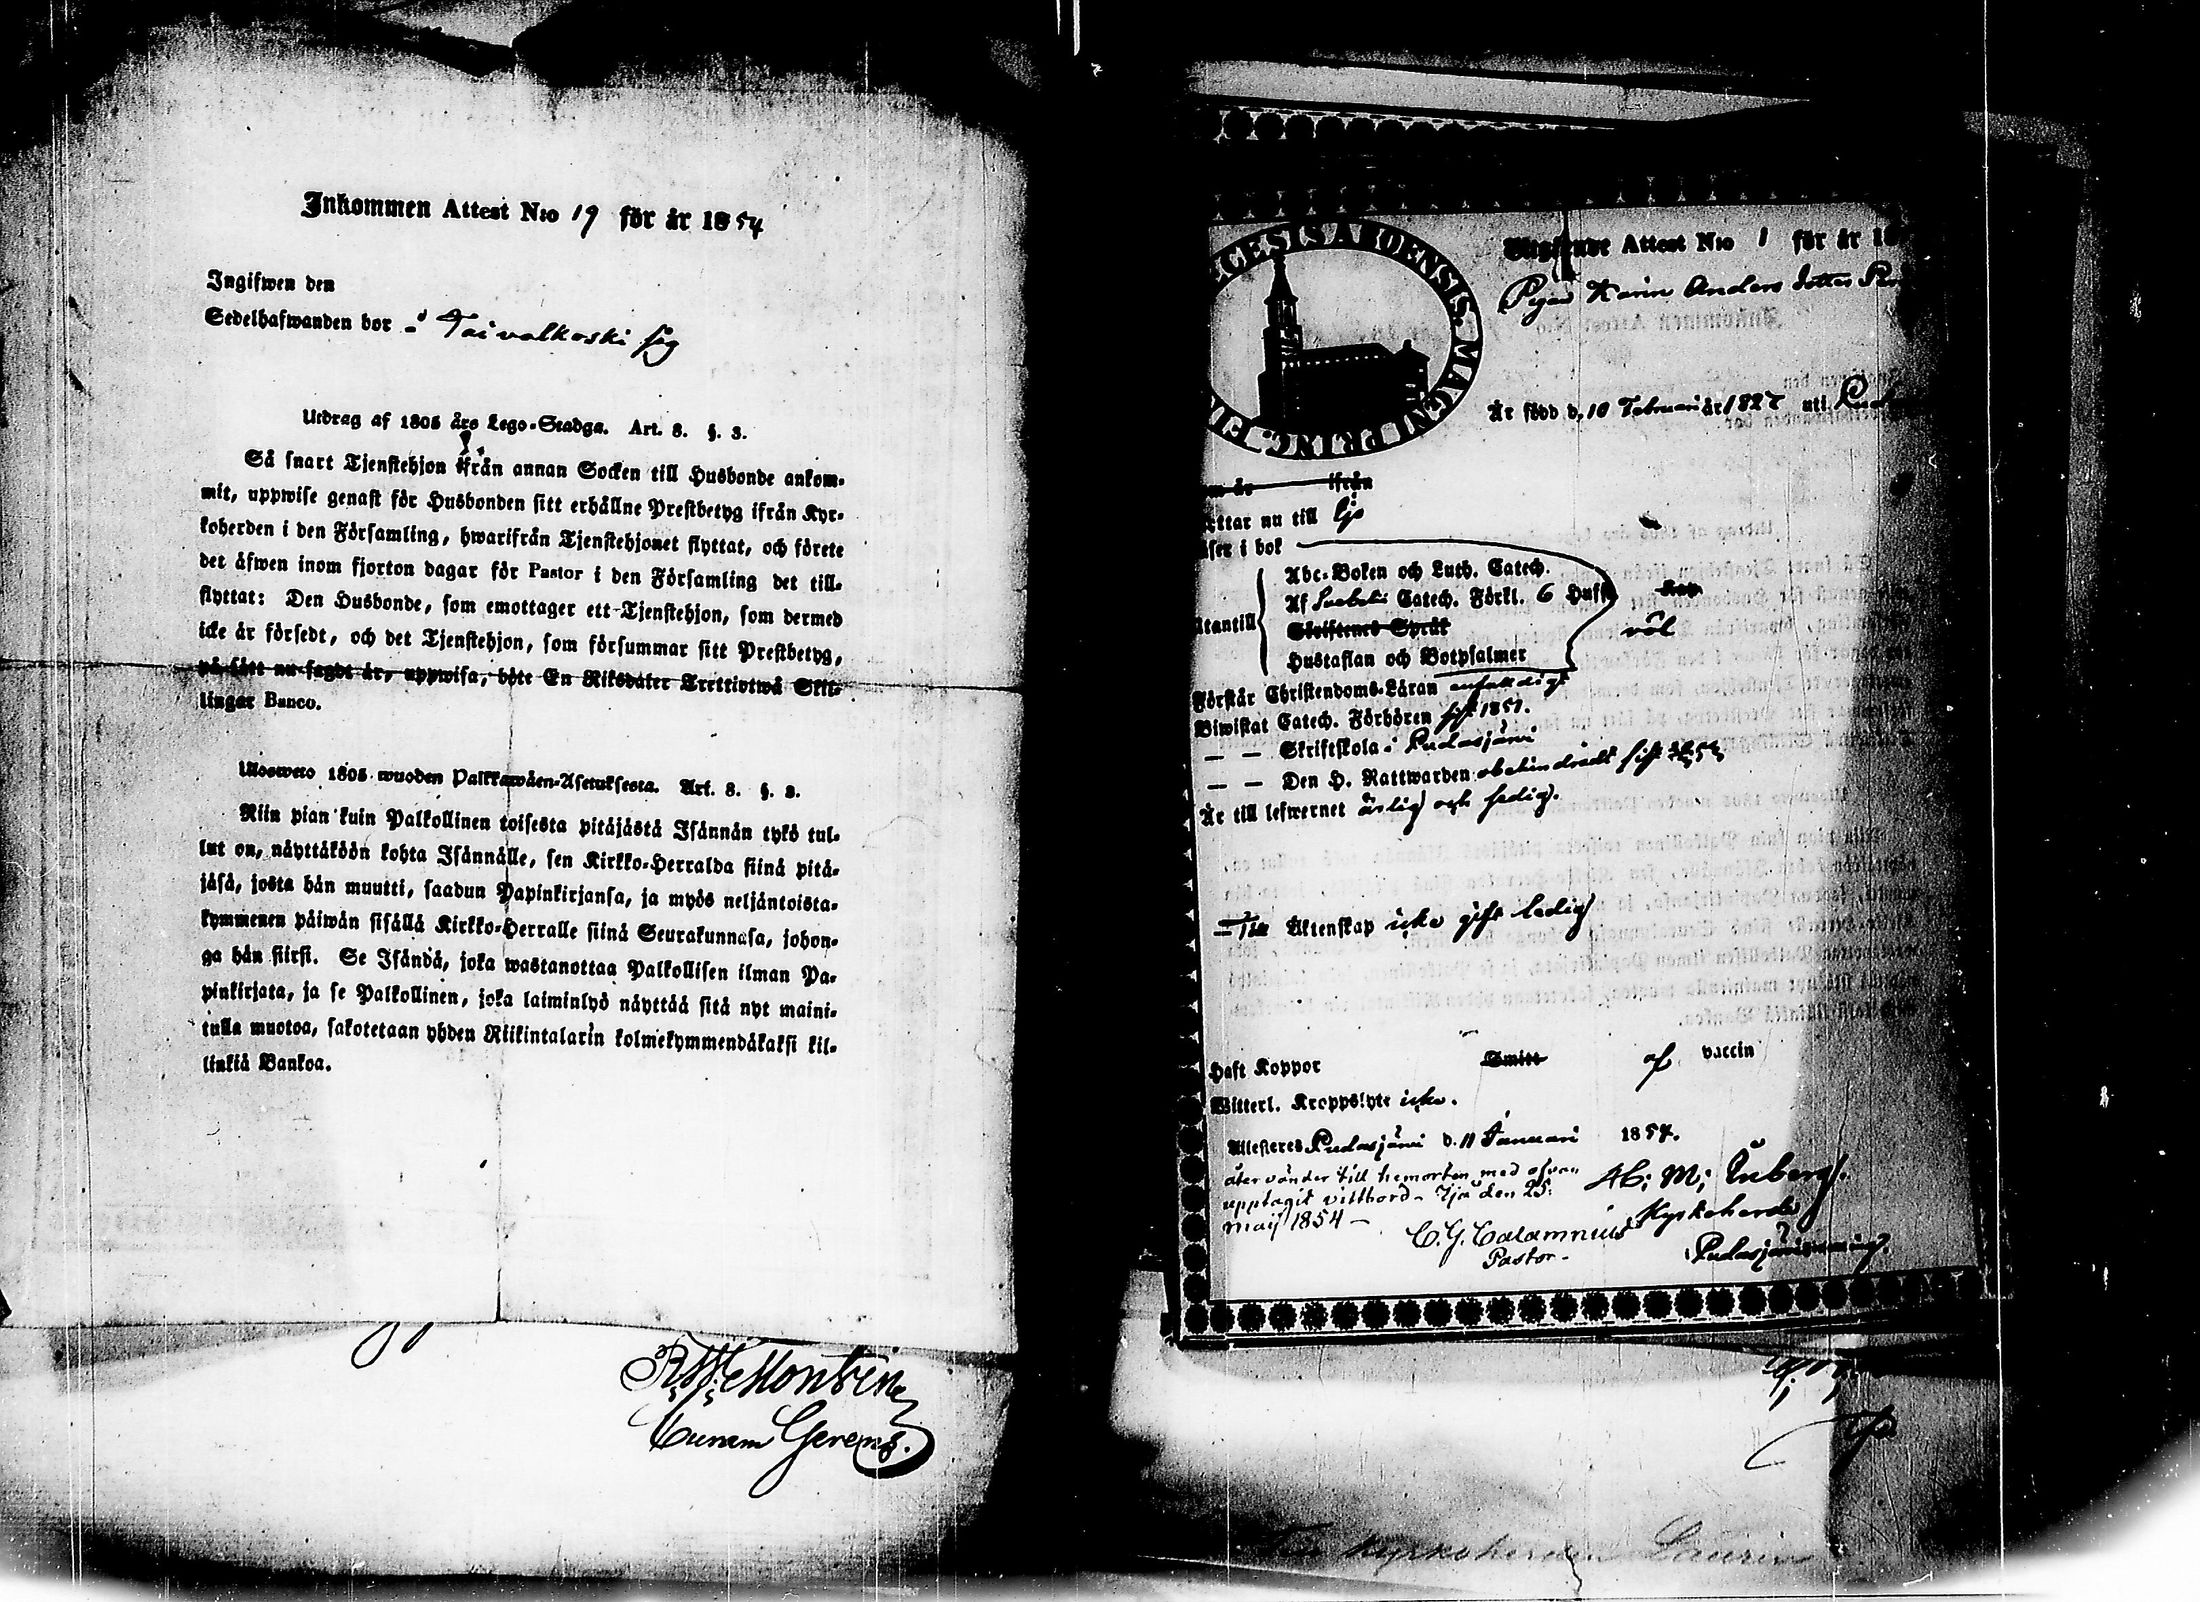 Inkommen Attest N:o 19 för år 1854
Ingifwen den
Sedelhafwanden bor i Taivalkoski
Utdrag af 1805 års Lego-Stadga. Art. 8. §. 3.
Så snart Tjenstehjon ifrån annan Socken till Husbonde ankom-
mit, uppwise genast för Husbonden sitt erhållne Prestbetyg ifrån Kyr-
koherden i den Församling, hwarifrån Tjenstehjonet flyttat, och förete
det äfwen inom fjorton dagar för Pastor i den Församling det till-
flyttat: Den Husbonde, som emottager ett Tjenstehjon, som dermed
icke är försedt, och det Tjenstehjon, som försummar sitt Prestbetyg,
på sätt nu sagdt är, uppwisa, böte En Riksdaler Trettiotwå Skil-
lingar Banco.
Ulosweto 1805 wuoden Palkkawäen-Asetuksesta. Art. 8. §. 3.
Niin pian kuin Palkollinen toisesta pitäjästä Isännän tykö tul-
lut on, näyttäköön kohta Isännälle, sen Kirkko-Herralda siinä pitä-
jäsä, josta hän muutti, saadun Papinkirjansa, ja myös neljäntoista-
kymmenen päiwän sisällä Kirkko-Herralle siinä Seurakunnasa, johon-
ga hän siirsi. Se Isändä, joka wastanottaa Palkollisen ilman Pa-
pinkirjata, ja se Palkollinen, joka laiminlyö näyttää sitä nyt maini-
tulla muotoa, sakotetaan yhden Riikintalarin kolmekymmendäkaksi kil-
linkiä Bankoa.
Curam Gerens.
ECESIS ABOENSIS. MAGNI PRINC. FI
Utgående Attest N:o 1 för år 18
Pigan Karin Anders dotter
Är född d. 10 Februari år 182 uti
ifrån
ttar nu till Ijo
äser i bok
Abc-Boken och Luth. Catech.
Af Svebelii Catech. Förkl. 6 Hufst
Skriftenes Språk
väl
utantill
Hustaflan och Botpsalmer
Förstår Christendoms-Läran enfaldigt
Biwistat Catech. Förhören sist 1851.
— — Skriftskola i Pudasjärvi
— — Den H. Nattwarden obehindradt sist
Är till lefwernet ärlig och sedig.
Till Äktenskap icke gift ledig
Haft Koppor Smitt af vaccin
Witterl. Kroppslyte icke.
Attesteres Pudasjärvi d. 11 Januari 1854.
återvänder till hemorten med ofvan
upptagit vittsord. Ijo den 25:
Maij 1854 —
C. G. Calamnius
Pastor –
Kyrkoherde
Kyrkoherden Laurin